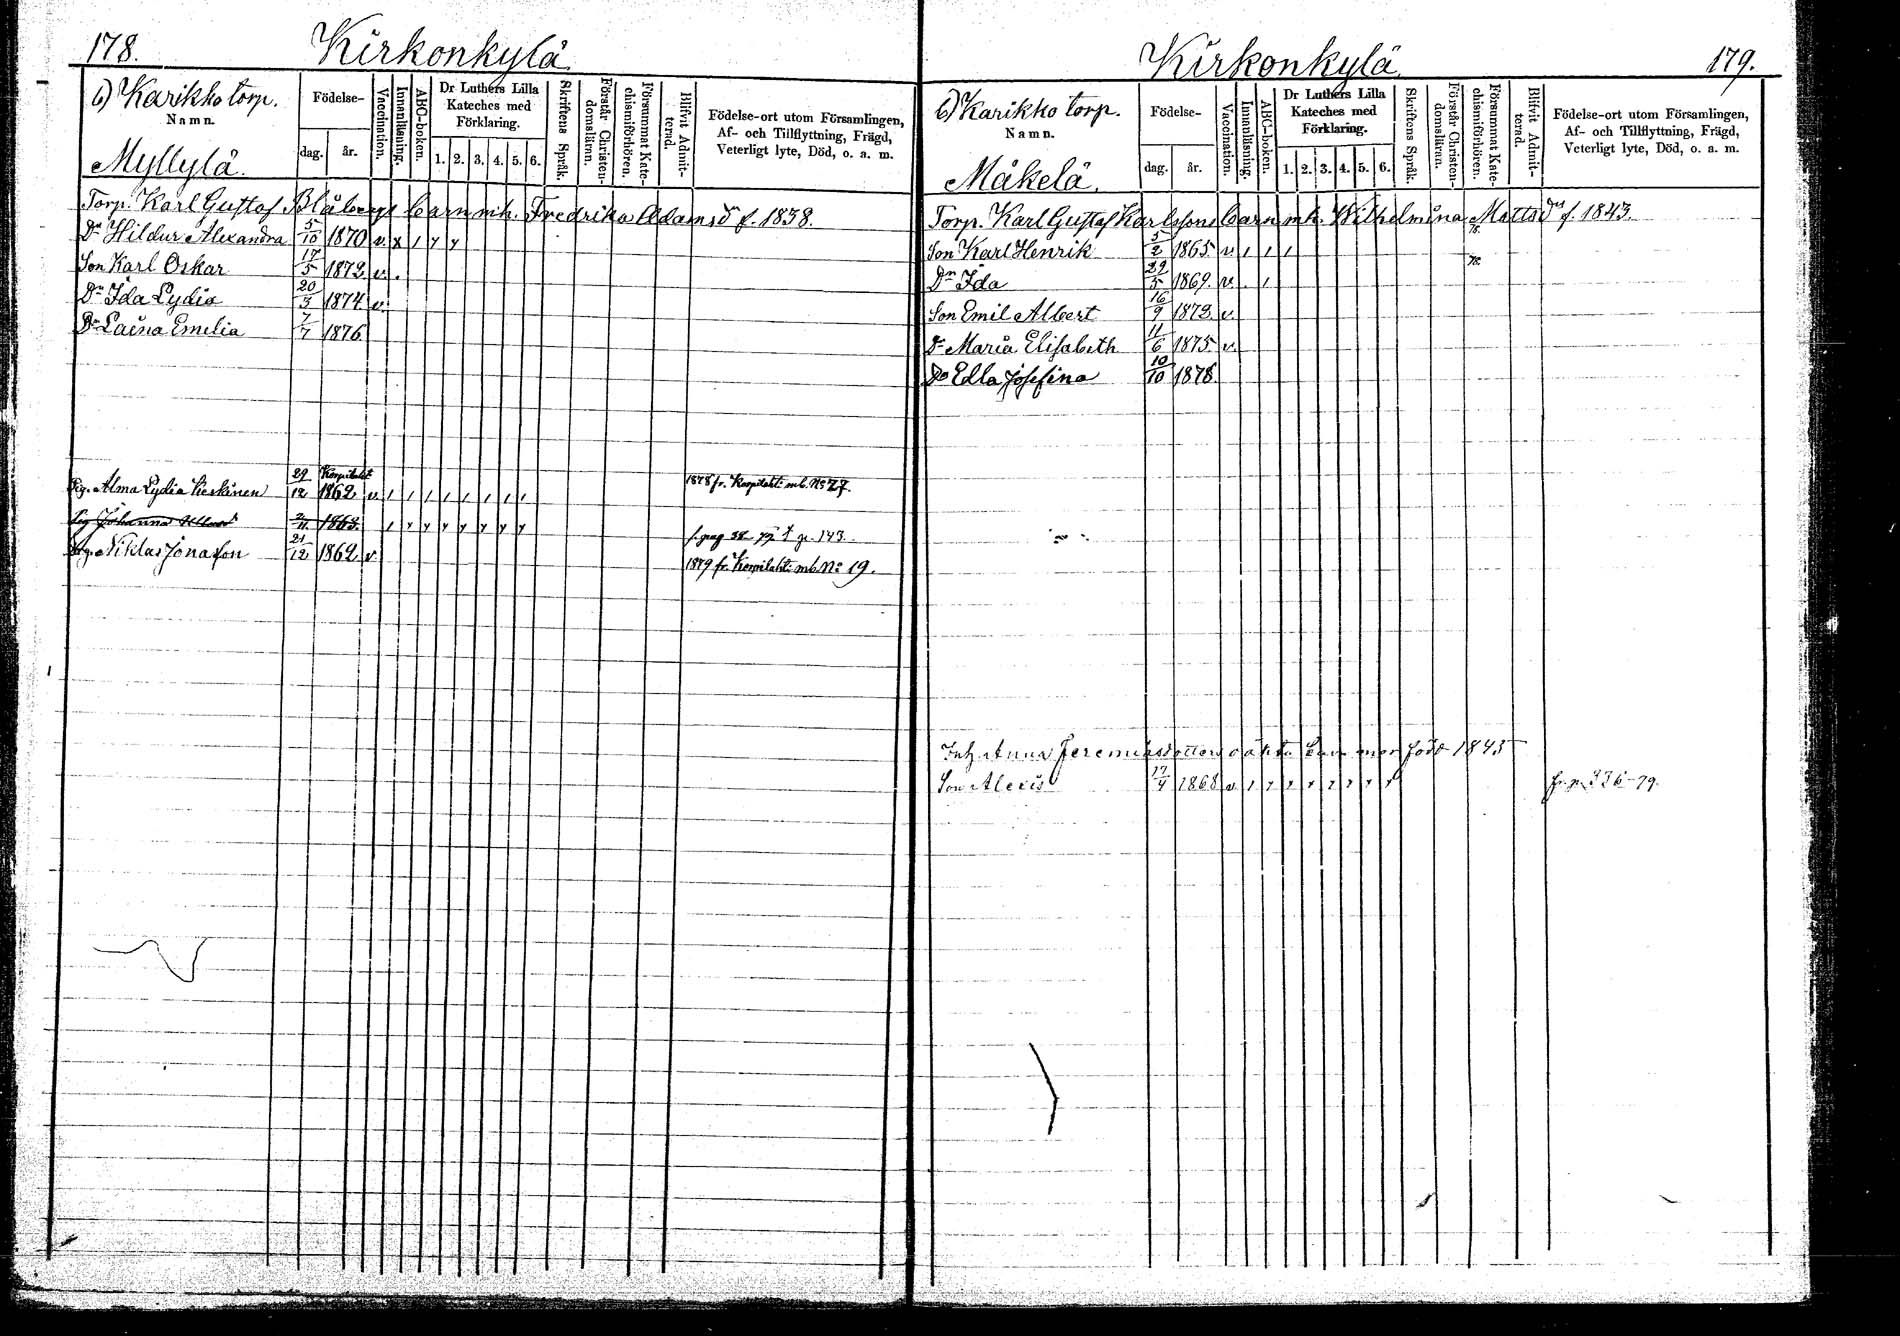 178.
Kirkonkylä
6) Karikko torp.
Namn.
Myllylä.
Födelse-
dag.
år.
Vaccination.
Innanläsning.
ABC-boken.
Dr Luthers Lilla
Kateches med
Förklaring.
1. 2. 3. 4. 5. 6.
Skriftens Språk.
Förstår Christen-
domsläran.
Försummat Kate-
chismiförhören.
Blifvit Admit-
terad.
Födelse-ort utom Församlingen,
Af- och Tillflyttning, Frägd,
Veterligt lyte, Död, o. a. m.
Torp. Karl Gustaf Blåbergs barn m.h. Fredrika Adamsdr f. 1838.
Dr Hildur Alexandra 5/10 1870 v. x 1 y y
Son Karl Oskar 17/5 1872 v.
Dr Ida Lydia 20/3 1874 v.
Dr Laina Emilia 7/7 1876
Pig. Alma Lydia Keskinen 29/12 Korpilaht 1862 v 1 1 1 1 1 1 1 1 1878 fr. Korpilaht. mb. No 27.
Pig Johanna 1863 1 y y y y y y y 143
Niklas Jonasson 21/12 1862 v. 1879 fr. Korpilaht. mb. No 19.
Kirkonkylä
179.
6) Karikko torp.
Namn.
Mäkelä.
Födelse-
dag.
år.
Vaccination.
Innanläsning.
ABC-boken.
Dr Luthers Lilla
Kateches med
Förklaring.
1. 2. 3. 4. 5. 6.
Skriftens Språk.
Förstår Christen-
domsläran.
Försummat Kate-
chismiförhören.
Blifvit Admit-
terad.
Födelse-ort utom Församlingen,
Af- och Tillflyttning, Frägd,
Veterligt lyte, Död, o. a. m.
Torp. Karl Gustaf Karlssons barn m.h. Wilhelmina Mattsdr f. 1843.
Son Karl Henrik 5/2 1865 v 1 1 1 78.
Dr Ida 29/5 1869. v. 1 78.
Son Emil Albert 16/9 1872 v.
Dr Maria Elisabeth 11/6 1875. v.
Dr Edla Josefina 10/10 1878
Inh. Anna Jeremiasdotters oäkta barn mor född 1845
Son Alexis 17/4 1868 v 1 y y y y y y y fr. p. 336-79.